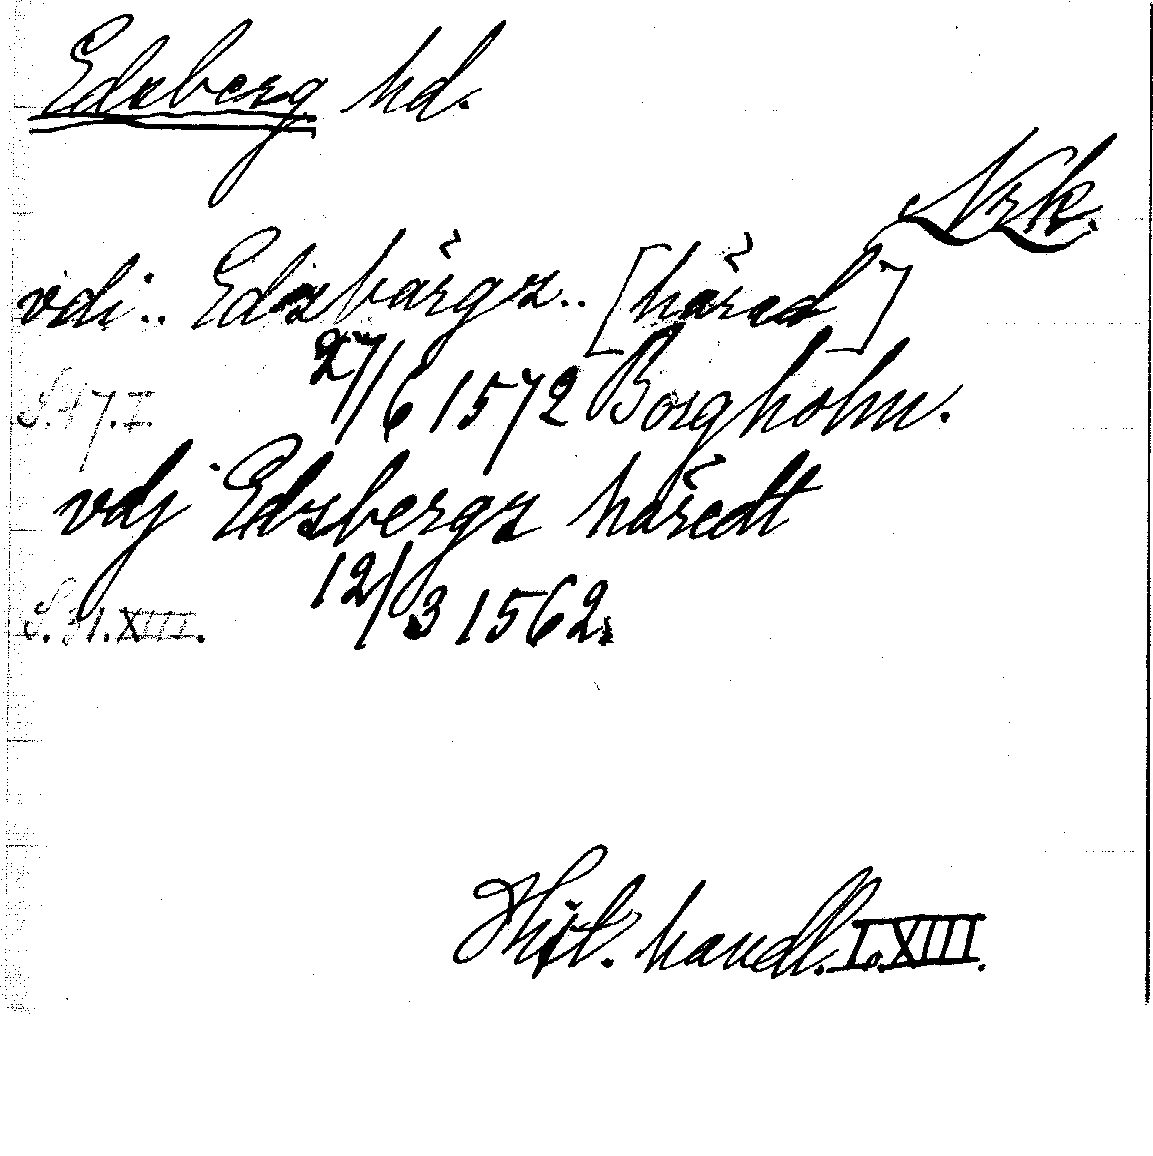 Edsberg hd.
Nrk.
vdi.. Edzbärgz.. [häred]
27/6 1572 Borgholm.
S. 47. I.
vdj Edzbergz häredt
12/3 1562.
S. 31. XIII.
Hist. handl. I. XIII.